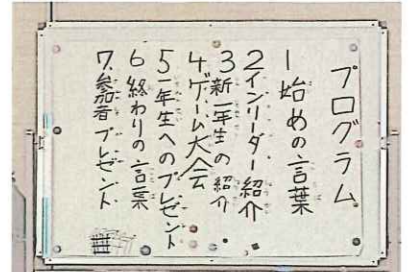 プログラム
1 始めの言葉
2 インリーダー紹介
3 新一年生の紹介
4 ゲーム大会
5 一年生へのプレゼント
6 終わりの言葉
7. 参加者プレゼント